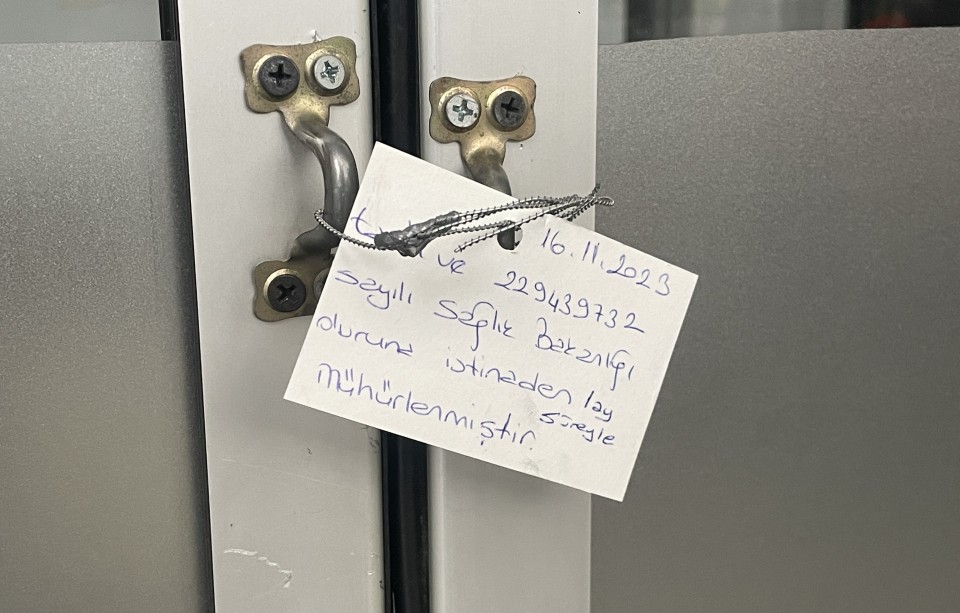 16.11.2023
ve 229439732
sayılı Sağlık Bakanlığı
oluruna istinaden 1ay
süreyle
Mühürlenmiştir.